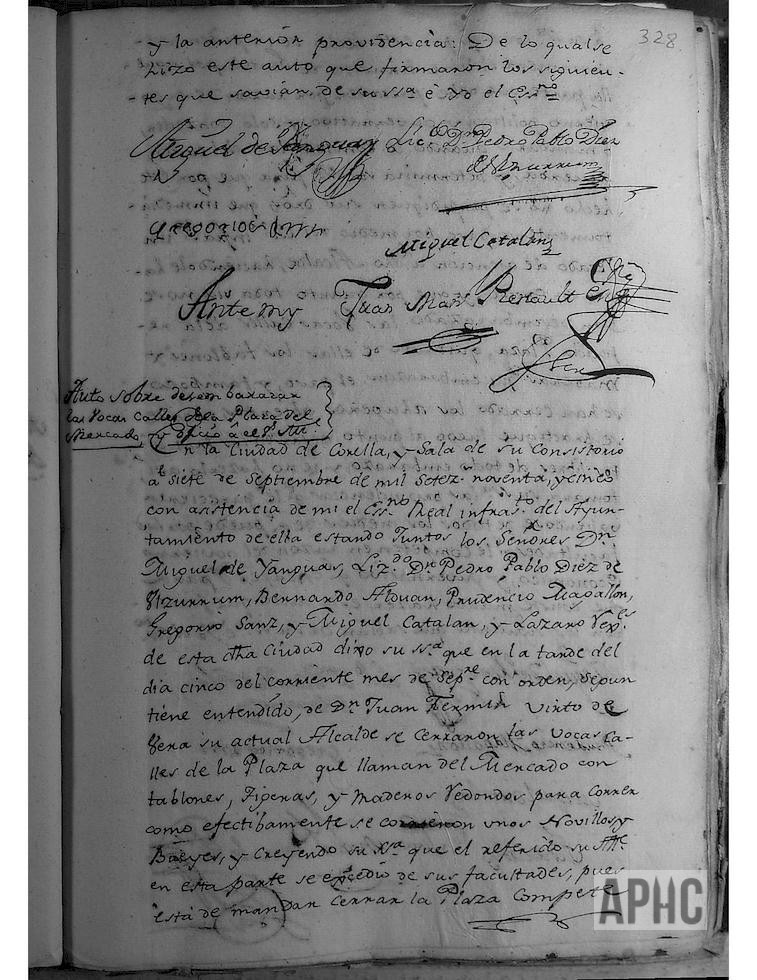 328
y la anterior providencia: De lo qual se
hizo este auto que firmaron los siguien-
tes que savian, de su ssª è Yo el Essno
Miguel de Yanguas Licdo Dn Pedro Pablo Diez
de Uzurrum
Gregorio Sanz
Miguel Catalan
Antemy Juan Manl Renault
Auto sobre desembarazar
las Vocas Calles dela Plaza del
Mercado, y oficio â el Sr. All.
En la Ciudad de Corella, y Sala de su Consistorio
a siete de Septiembre de mil Setezs noventa, y cinco
con asistencia de mi el Essno Real infrasto del Ayun-
tamiento de ella estando Juntos los Señores Dn
Miguel de Yanguas, Lizdo Dn Pedro Pablo Diez de
Uzurrum, Bernardo Alduan, Prudencio Magallon,
Gregorio Sanz, y Miguel Catalan, y Lazaro
de esta dha Ciudad dixo su ssª que en la tarde del
dia cinco del corriente mes de Sepre con orden, segun
tiene entendido, de Dn Juan Fermin Virto de
Vera su actual Alcalde se cerraron las Vocas Ca-
lles de la Plaza que llaman del Mercado con
tablones, Figeras, y Maderos Redondos para correr
como efectibamente se corrieron unos Novillos, y
Bueyes, y Creyendo su ssª que el referido su Alle
en esta parte se excedio de sus facultades, pues
esta de mandar cerrar la Plaza Compete
APHC